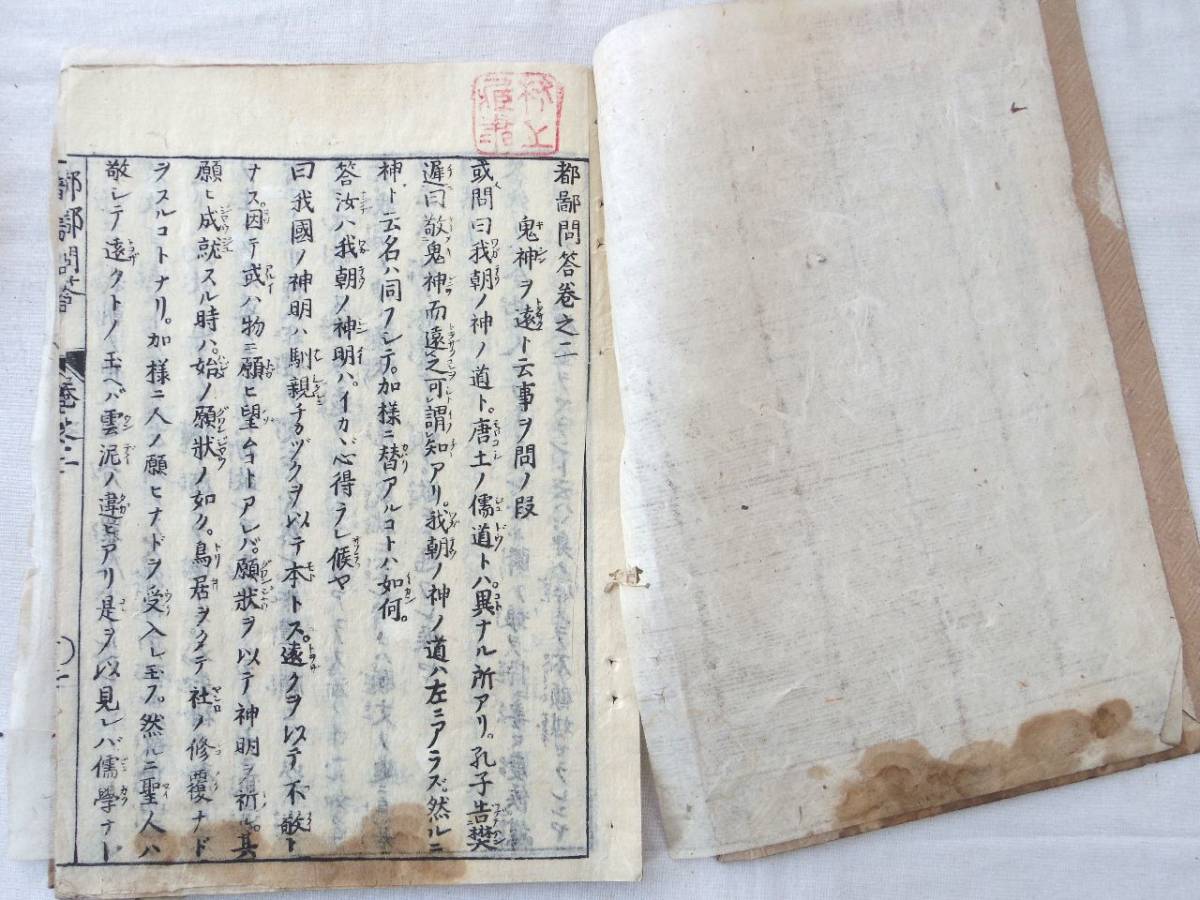 都鄙問答卷之二
鬼神ヲ遠ト云事ヲ問ノ段
或問曰我朝ノ神ノ道ト。唐土ノ儒道トハ異ナル所アリ。孔子告樊
遲曰敬鬼神而遠之可謂知アリ。我朝ノ神ノ道ハ左ニアラズ。然ルニ
神ト云名ハ同フシテ。加様ニ替アルコトハ如何。
答汝ハ我朝ノ神明ハ。イカヾ心得ラレ候ヤ
曰我國ノ神明ハ馴親チカヅクヲ以テ本トス。遠クヲ以テ不敬ト
ナス。因テ或ハ物ニ願ヒ望ムコトアレバ。願狀ヲ以テ神明ヲ祈ル。其
願ヒ成就スル時ハ。始ノ願狀ノ如ク。鳥居ヲタテ社ノ修覆ナド
ヲスルコトナリ。加様ニ人ノ願ヒナドヲ受入レ玉フ。然ルニ聖人ハ
敬シテ遠クトノ玉ヘバ雲泥ノ違ヒアリ是ヲ以見レバ儒學ナト
都鄙問答
卷之二